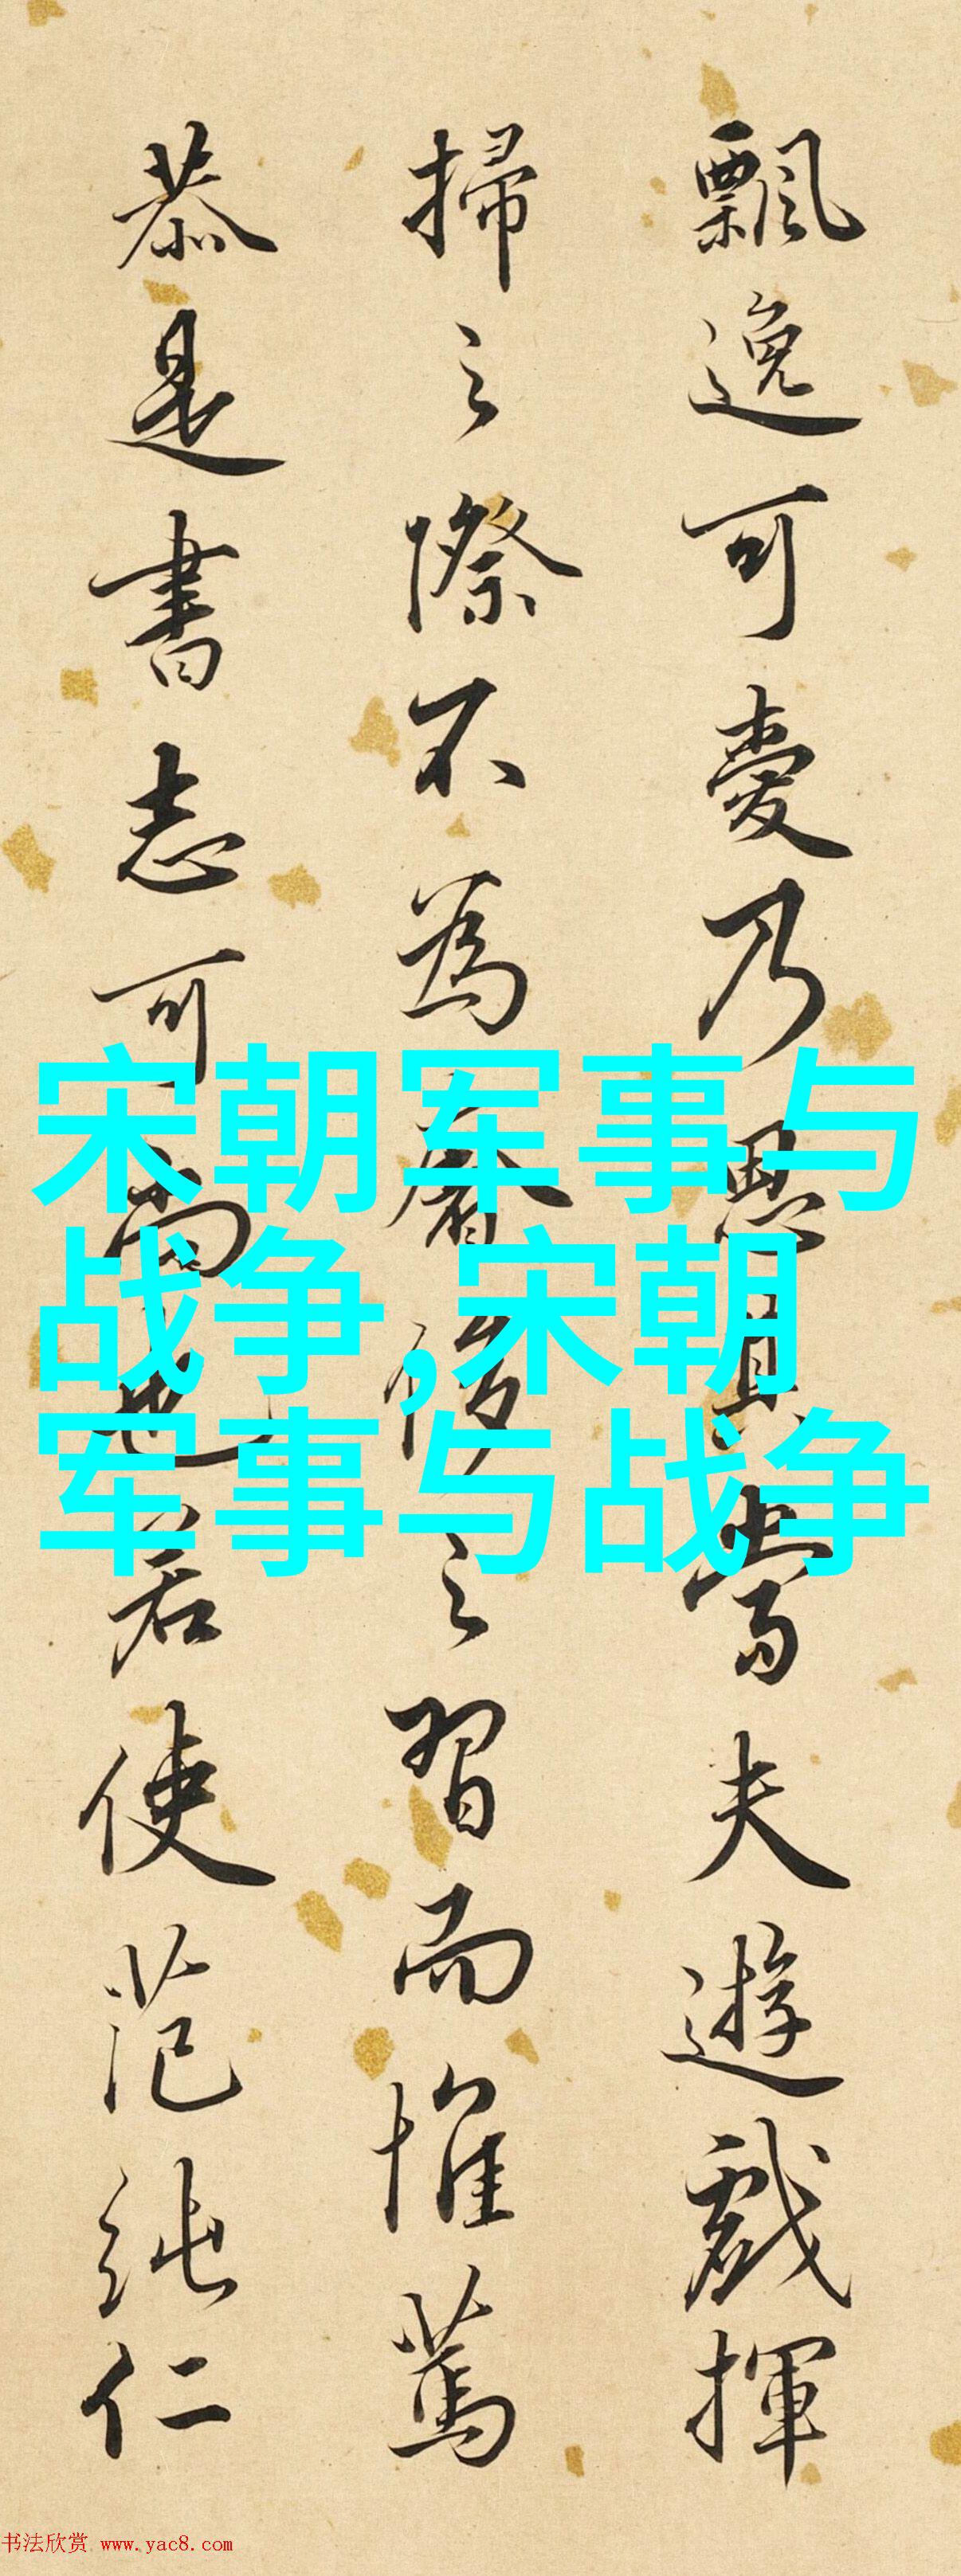 飄逸可愛乃思其當夫遊戲揮
掃之際不為奢侈之習而惟篤
恭是書志可尚也若使范純仁
宋朝军事与
战争,宋朝
军事与战争
书法欣赏 www.yac8.com